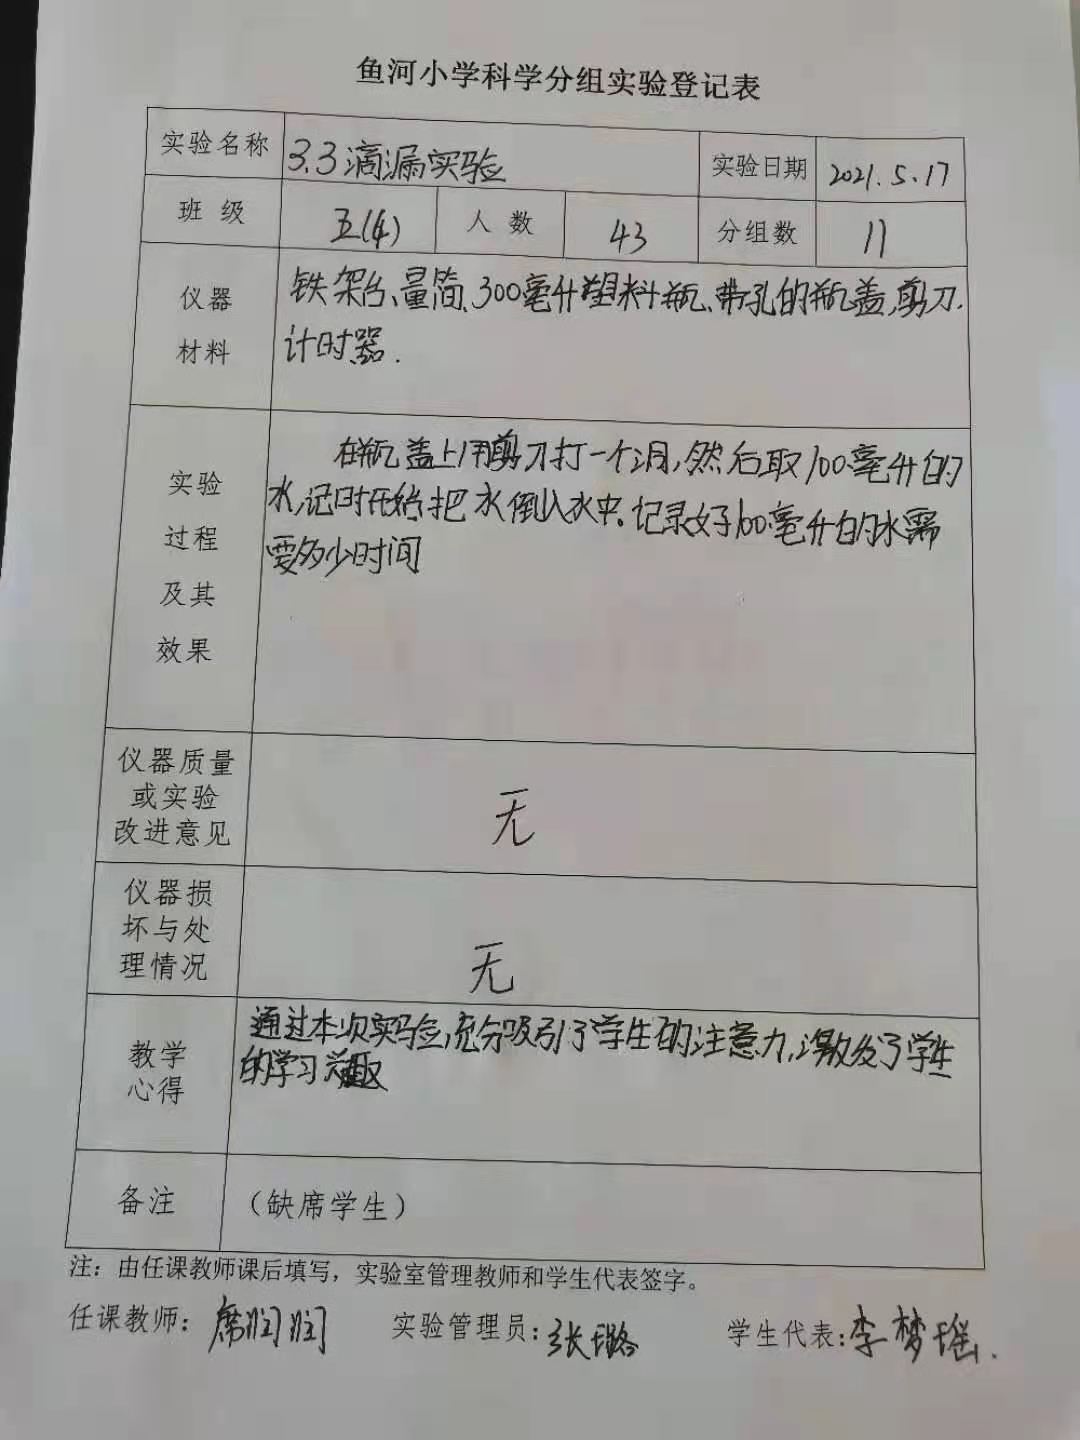 鱼河小学科学分组实验登记表
实验名称 3.3滴漏实验 实验日期 2021.5.17
班级 五(4) 人数 43 分组数 11
仪器材料 铁架台、量筒、300毫升塑料瓶、带孔的瓶盖,剪刀.
计时器.
实验过程及其效果 在瓶盖上用剪刀打一个洞,然后取100毫升的
水,记时开始把水倒入水中.记录好100毫升的水需
要多少时间
仪器质量
或实验
改进意见 无
仪器损
坏与处
理情况 无
教学
心得 通过本次实验,充分吸引了学生的注意力,激发了学生
的学习兴趣
备注 (缺席学生)
注：由任课教师课后填写，实验室管理教师和学生代表签字。
任课教师：席润润 实验管理员:张璐 学生代表:李梦瑶.